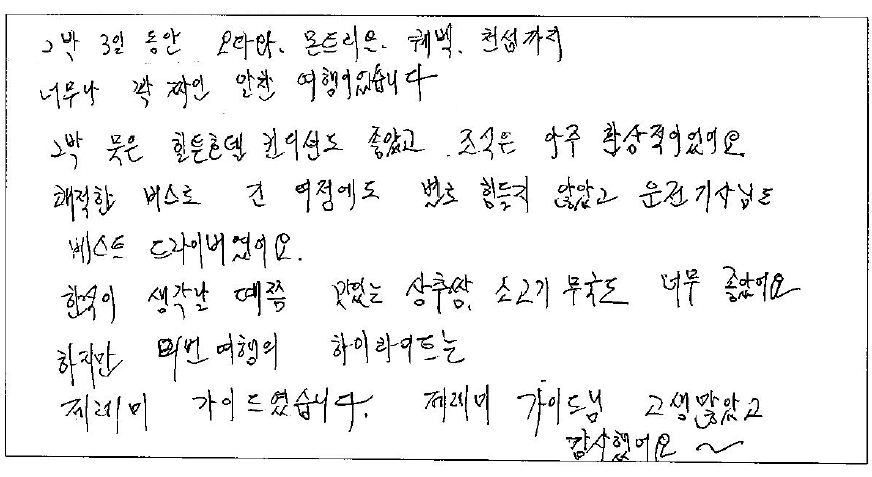 2박 3일 동안 오타와. 몬트리온. 퀘벡. 천섬까지
너무나 꽉 짜인 알찬 여행이었습니다
2박 묵은 힐튼호텔 컨디션도 좋았고 조식은 아주 환상적이었어요
쾌적한 버스로 긴 여정에도 별로 힘들지 않았고 운전기사님도
베스트 드라이버였어요.
한식이 생각날 때쯤 맛있는 상추쌈, 소고기 무국도 너무 좋았어요
하지만 이번여행의 하이라이트는
제레미 가이드였습니다. 제레미 가이드님 고생많았고
감사했어요 ~